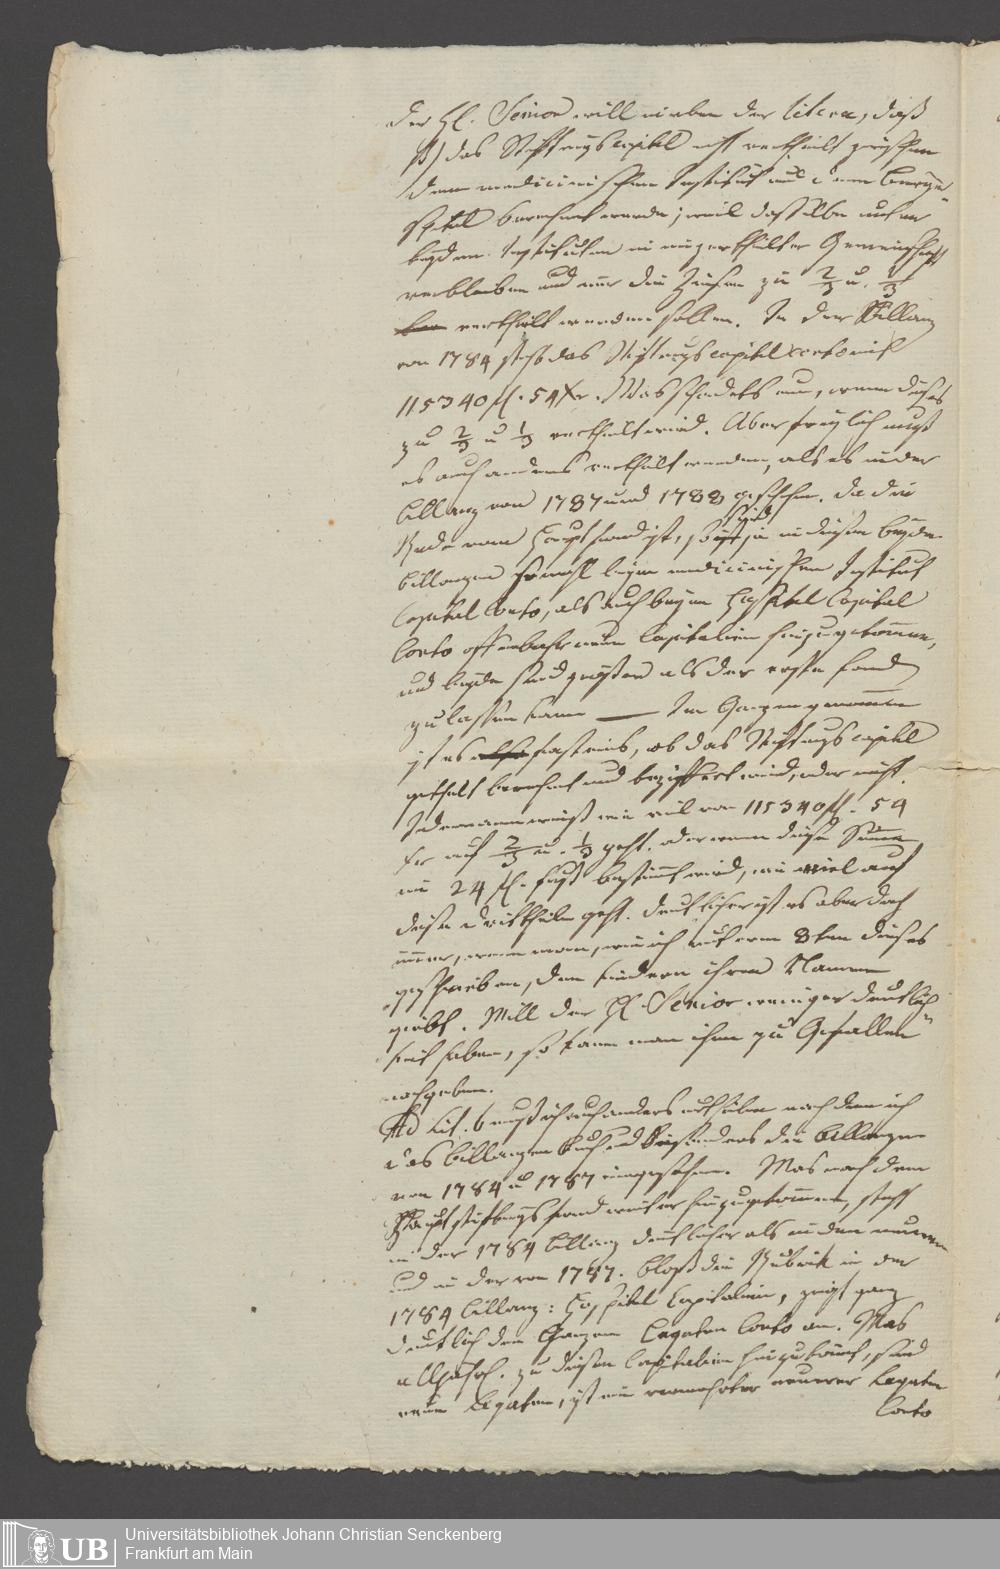 der H. Senior will neben der litera, daß
β) das Stiftungscapital nicht vertheilt zwischen
dem medicinischen Institut und dem Bürger
spital berechnet werde; weil dasselbe unter
beyden Instituten in unzertheilter Gemeinschaft
verbleiben und nur die Zinsen zu 2/3 u. 1/3
vertheilt werden sollen. In der Billanz
von 1784 steht das Stiftungscapital conto mit
115340 fl. 54 Xr. Was schadets nun, wenn dieses
zu 2/3 u 1/3 vertheilt wird. Aber freylich muß
es auch anders vertheilt werden, als es in der
billanz von 1787 und 1788 geschehen. da die
Rede vom Hauptfond ist, so sind ja in diesen beyden
billanzen sowohl beym medicinischen Institut
Capital Conto, als auch beym Hospital Capital
Conto offenbahr neue Capitalien hinzugekommen,
und beyde sind größer als der erste fond
zulassen kann — Im Ganzen genommen
ist es fast eins, ob das Stiftungscapital
getheilt berechnet und beziffert wird, oder nicht.
Jedermann weiß wie viel von 115340 fl. 54
Xr auf 2/3 u. 1/3 geht. oder wenn diese Summe
24 fl. bestimmt wird, wie viel auf
diese Dritttheile geht. deutlicher ist es aber doch
immer, wenn man, wie ich unterm 8ten dieses
geschrieben, den Kindern ihren Namen
giebt. Will der H. Senior weniger Deutlich
keit haben, so kann man ihm zu Gefallen
nachgeben.
Ad Lit. b muß ich auch anders urtheilen nachdem ich
das billanzen Buch und besonders die billanzen
von 1784 u 1787 eingesehen. Was nach dem
Hauptstiftungsfond weiter hinzugekommen, steht
in der 1784 billanz deutlicher als in den neuern
und in der von 1787. bloß die Rubrik in der
1784 billanz: Hospital Capitalien, zeigt ganz
deutlich den Ganzen Legaten Conto an. Was
alljährl. zu diesen Capitalien hinzukömt, sind
neue Legaten, ist ein vermehrter neuerer Legaten
Conto
UB
Universitätsbibliothek Johann Christian Senckenberg
Frankfurt am Main